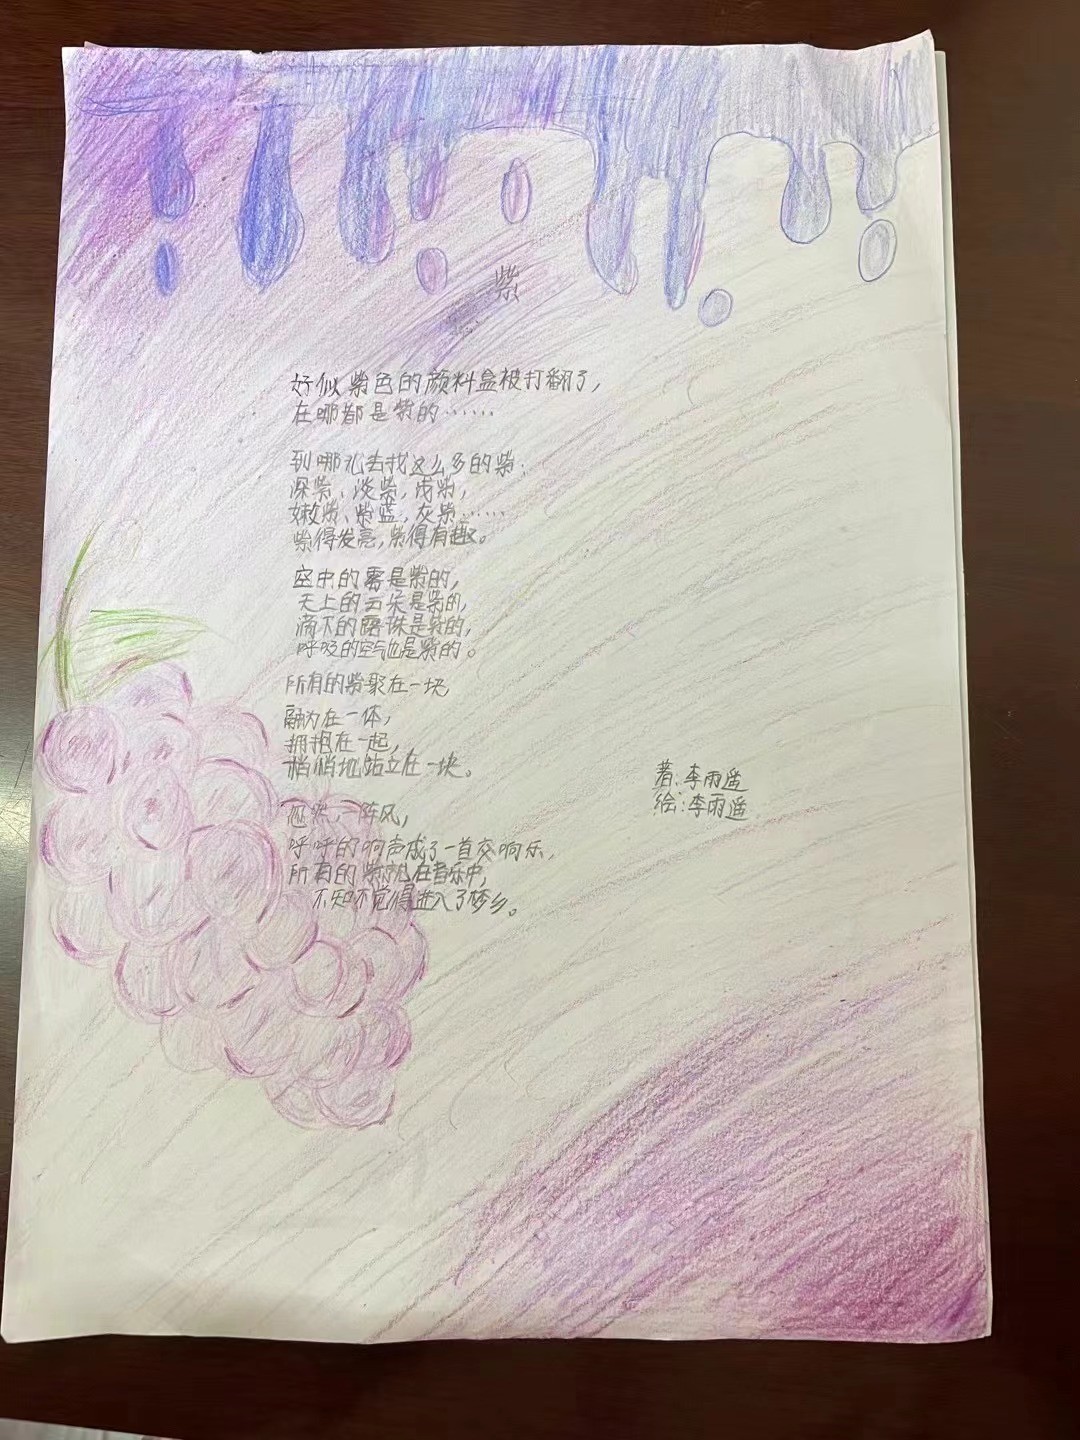 紫
好似紫色的颜料盒被打翻了，
在哪都是紫的……
到哪儿去找这么多的紫：
深紫、淡紫，浅紫，
嫩紫、紫蓝，灰紫……
紫得发亮，紫得有趣。
空中的雾是紫的，
天上的云朵是紫的，
滴下的露珠是紫的，
呼吸的空气也是紫的。
所有的紫聚在一块，
融为在一体，
拥抱在一起，
悄悄地站立在一块。
忽然，一阵风，
呼呼的响声成了一首交响乐，
所有的紫在音乐中，
不知不觉得进入了梦乡。
著：李雨遥
绘：李雨遥